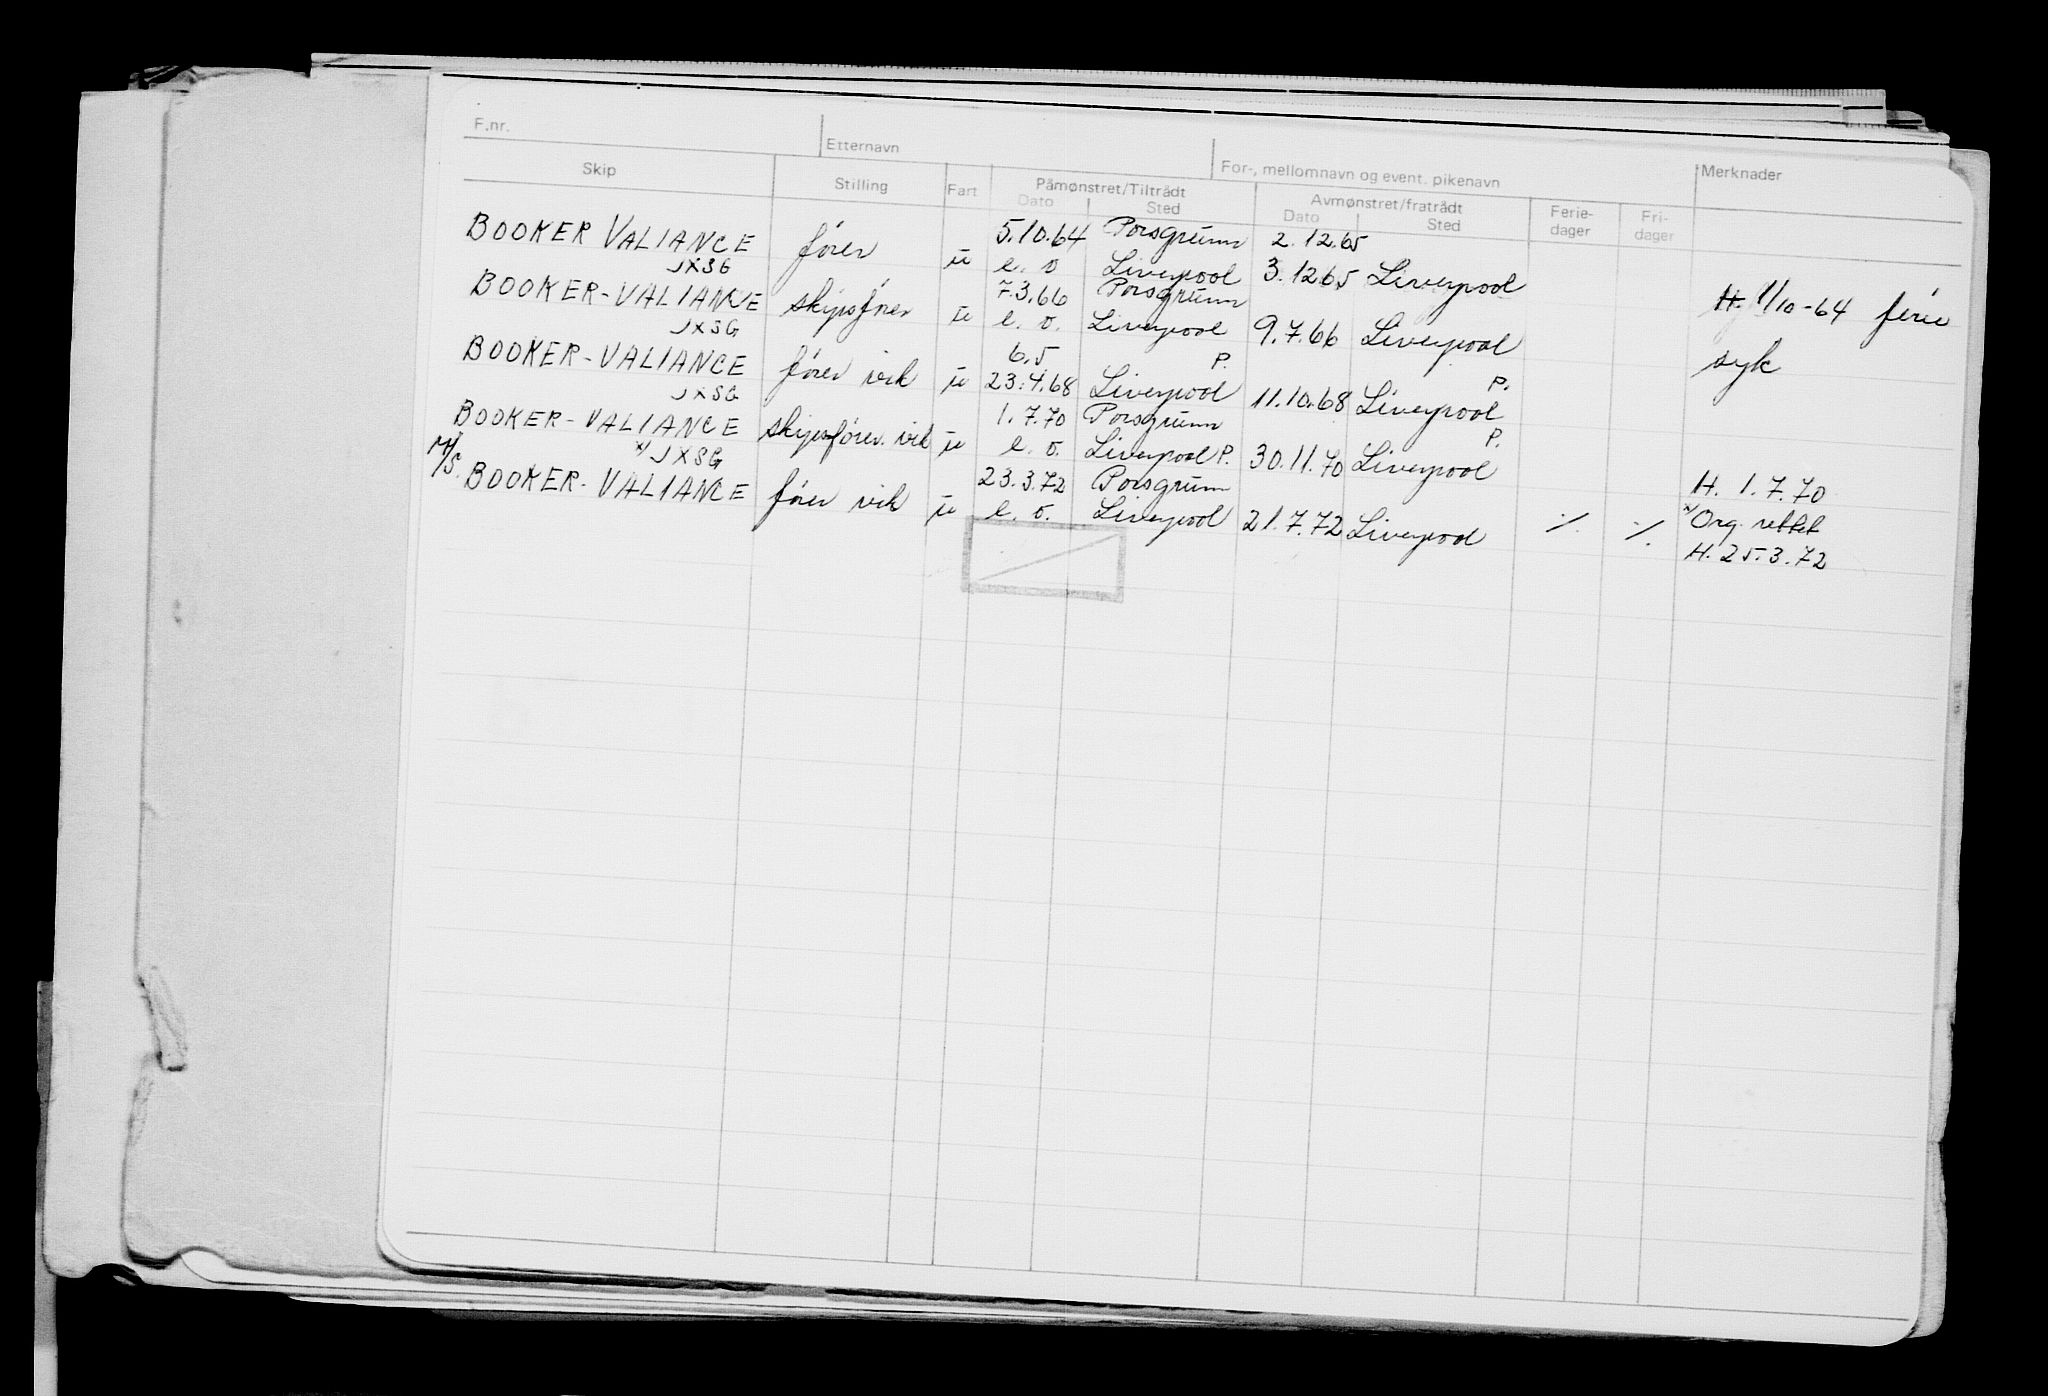 F.nr. Etternavn For-, mellomnavn og event. pikenavn Merknader
Skip Stilling Fart Påmønstret/Tiltrådt Avmønstret/fratrådt Ferie- Fri-
Dato Sted Dato Sted dager dager
BOOKER VALIANCE fører u 5.10.64 Porsgrunn 2.12.65
JXSG e. o Liverpool 3.12.65 Liverpool H. 1/10-64 ferie
BOOKER-VALIANCE skipsfører u 7.3.66 Porsgrunn
JXSG e. o. Liverpool 9.7.66 Liverpool syk
BOOKER-VALIANCE fører vik u 6.5 P. P.
JXSG 23.4.68 Liverpool 11.10.68 Liverpool
BOOKER-VALIANCE skipsfører vik u 1.7.70 Porsgrunn P.
x) JXSG e. o. Liverpool P. 30.11.70 Liverpool H. 1.7.70
M/S. BOOKER-VALIANCE fører vik u 23.3.72 Porsgrunn x) Org. rettet
e. o. Liverpool 21.7.72 Liverpool ./. ./. H. 25.3.72